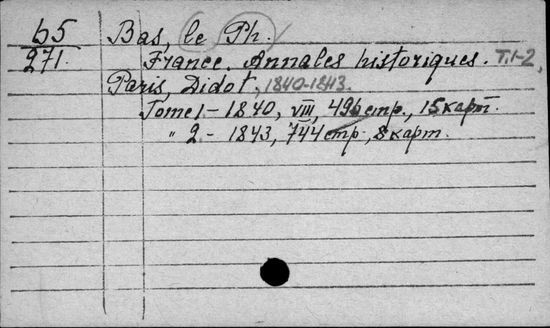 65 Bas, le Ph.
271. France. Annales historiques. T.1-2,
Paris, Didot, 1840-1843.
Tome 1 - 1840, VIII, 496 стр., 15 карт.
" 2 - 1843, 744 стр., 8 карт.